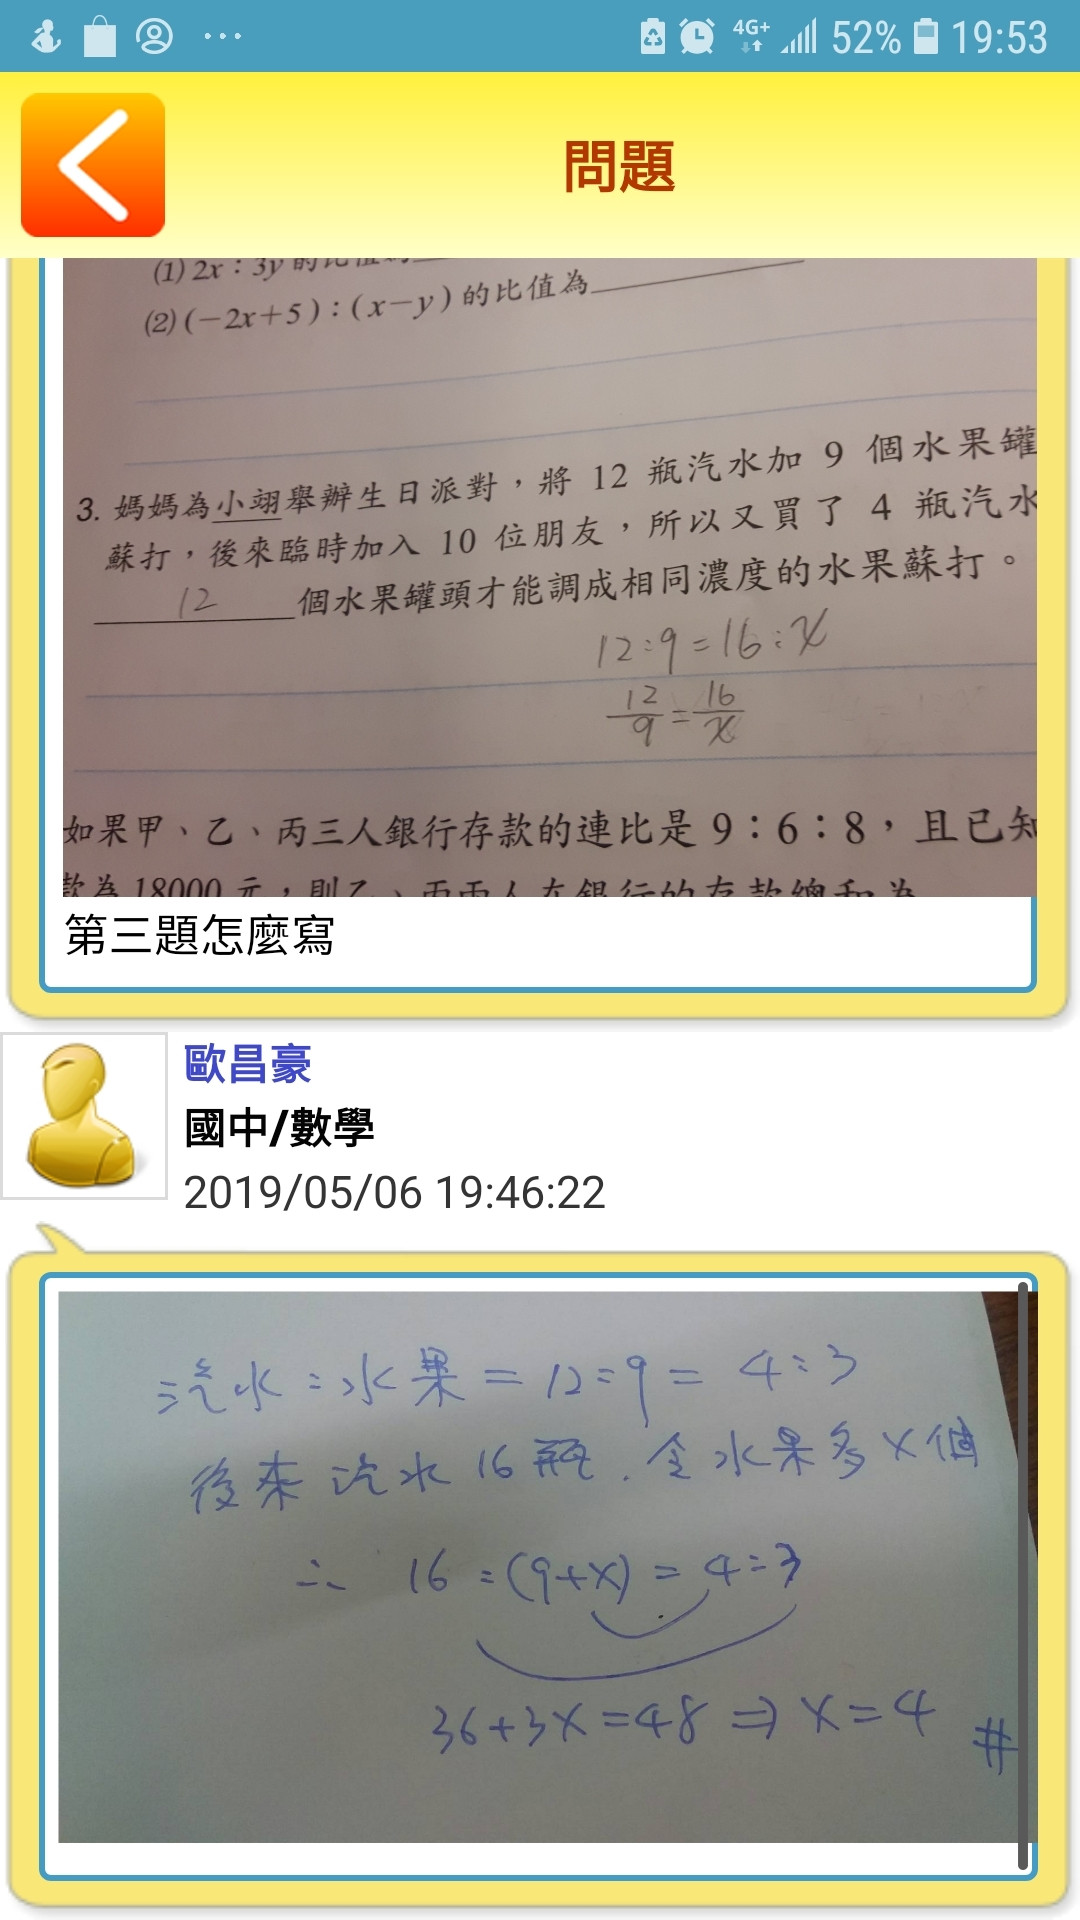 4G+ 52% 19:53
問題
(1) 2x：3y 的比值
(2) (－2x＋5)：(x－y) 的比值為
3. 媽媽為小翊舉辦生日派對，將 12 瓶汽水加 9 個水果罐
蘇打，後來臨時加入 10 位朋友，所以又買了 4 瓶汽水
12 個水果罐頭才能調成相同濃度的水果蘇打。
12:9=16:x
12/9=16/x
如果甲、乙、丙三人銀行存款的連比是 9：6：8，且已知
款為 18000 元，則乙、丙兩人在銀行的存款總和為
第三題怎麼寫
歐昌豪
國中/數學
2019/05/06 19:46:22
汽水:水果=12:9=4:3
後來汽水16瓶.令水果多x個
∴ 16:(9+x)=4:3
36+3x=48⇒x=4 #